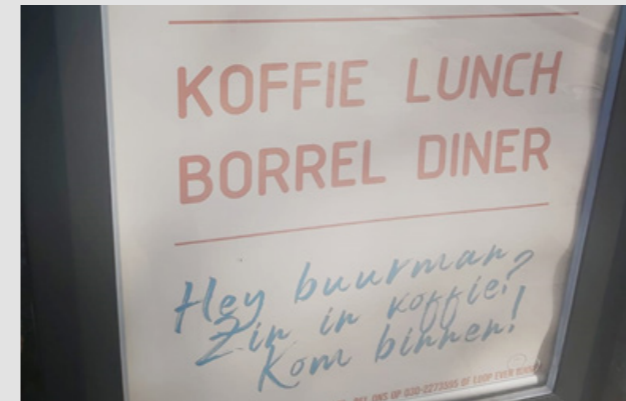 KOFFIE LUNCH
BORREL DINER
Hey buurman,
Zin in koffie?
Kom binnen!
OP 030-2273595 OF LOOP EVEN